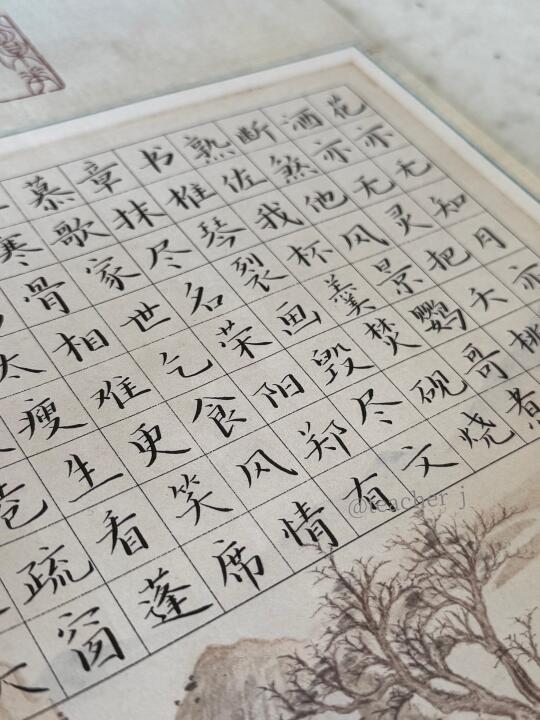 花亦无知月亦
酒亦无灵把夭桃
断煞他风景鹦哥煮
熟佐我杯羹焚砚烧
书椎琴裂画毁尽文
章抹尽名荥阳郑有
慕歌家世乞食风情
寒骨相难更笑席
太瘦生看蓬
巷疏窗
@teacher j